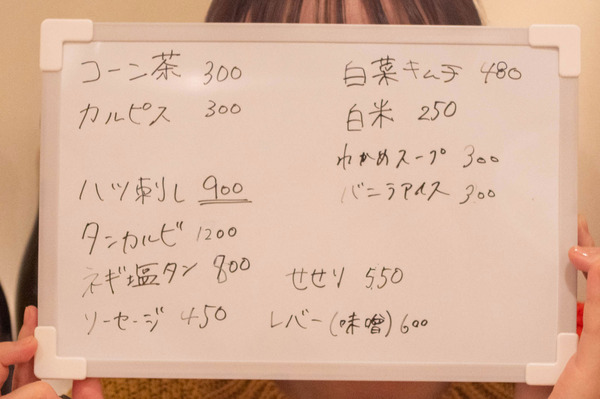 コーン茶 300
カルピス 300
ハツ刺し 900
タンカルビ 1200
ネギ塩タン 800
ソーセージ 450
白菜キムチ 480
白米 250
わかめスープ 300
バニラアイス 300
せせり 550
レバー(味噌) 600